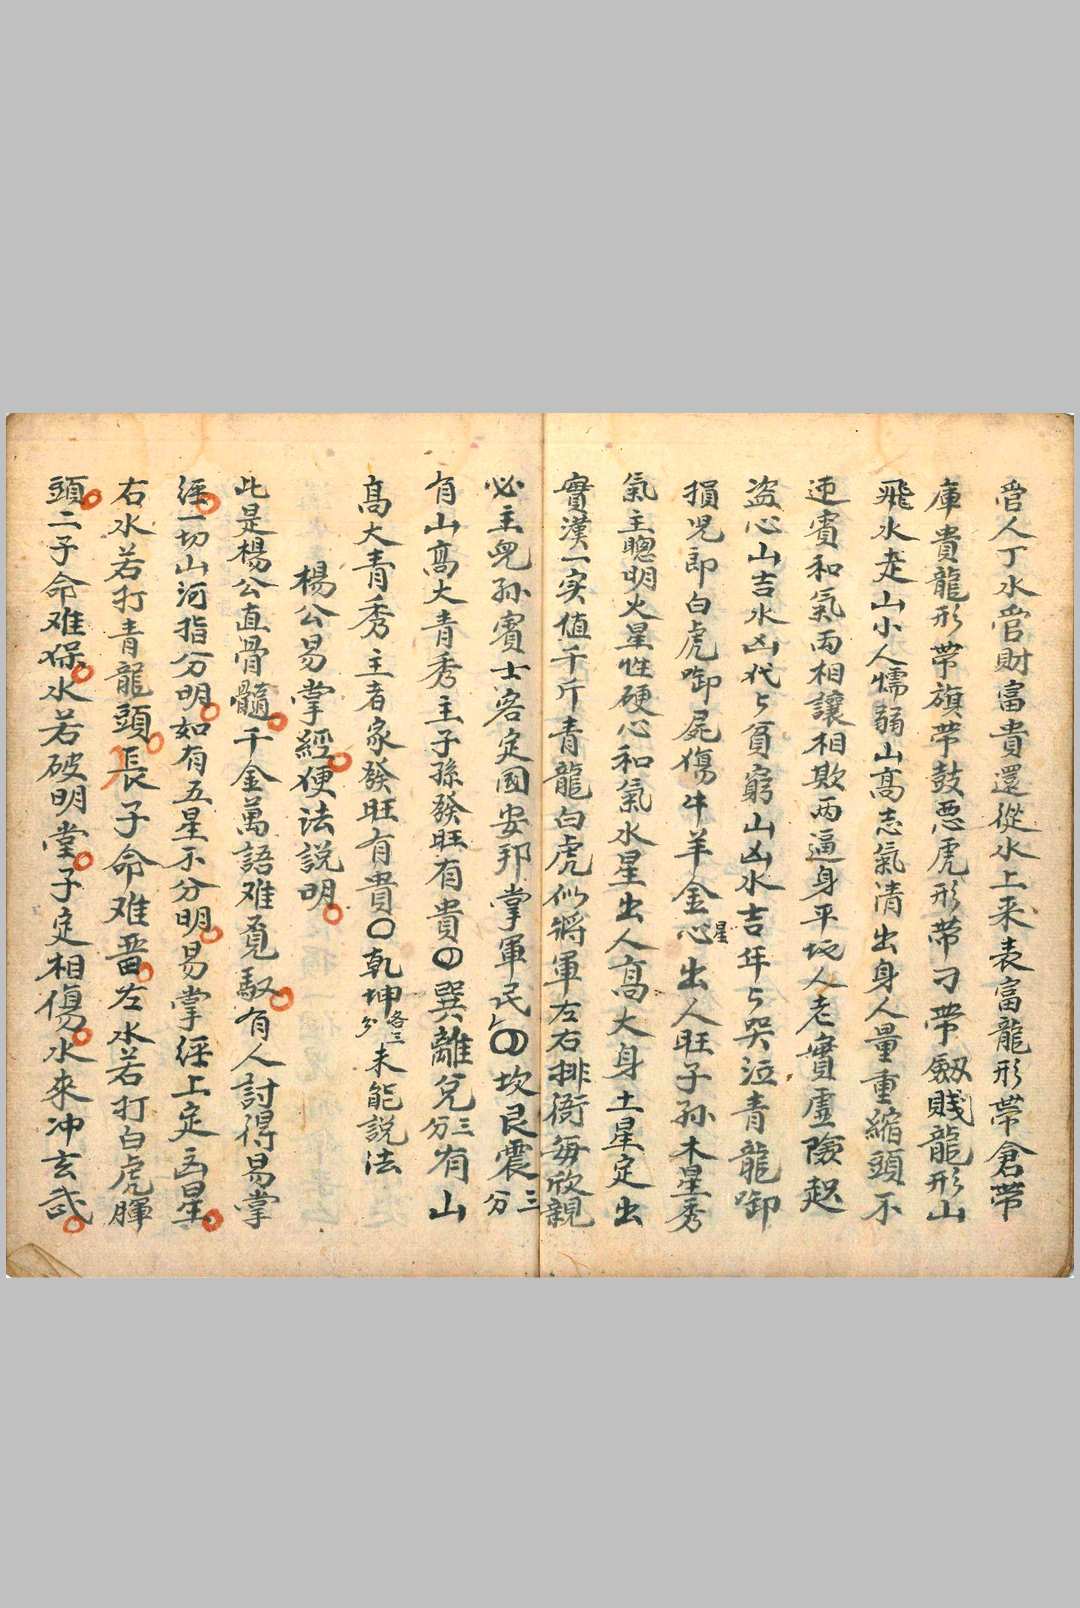 管人丁水管財富貴還從水上来表富龍形帶倉帶
庫貴龍形帶旗帶鼓悪虎形帶刁帶劔賤龍形山
飛水走山小人懦弱山髙志氣清出身人量重縮頭不
迎賓和氣两相讓相欺两逼身平坵人老實虛險起
盗心山吉水凶代々貧窮山凶水吉年々哭泣青龍啣
損児郎白虎啣屍傷牛羊金星心出人旺子孫木星秀
氣主聰明火星性硬心和氣水星出人髙大身土星定出
實漢一实值千斤青龍白虎似將軍左右排衙毎欣親
必主兒孫賓士客定國安邦掌軍民〇坎艮震三分
有山髙大青秀主子孫發旺有貴〇巽離兌三分有山
髙大青秀主者家發旺有貴〇乾坤各三分未能説法
楊公易掌經便法説明
此是楊公直骨髓千金萬語难覔馭有人討得易掌
経一切山河指分明如有五星不分明易掌経上定凶星
右水若打青龍頭長子命难畱左水若打白虎腪
頭二子命难保水若破明堂子定相傷水來冲玄武